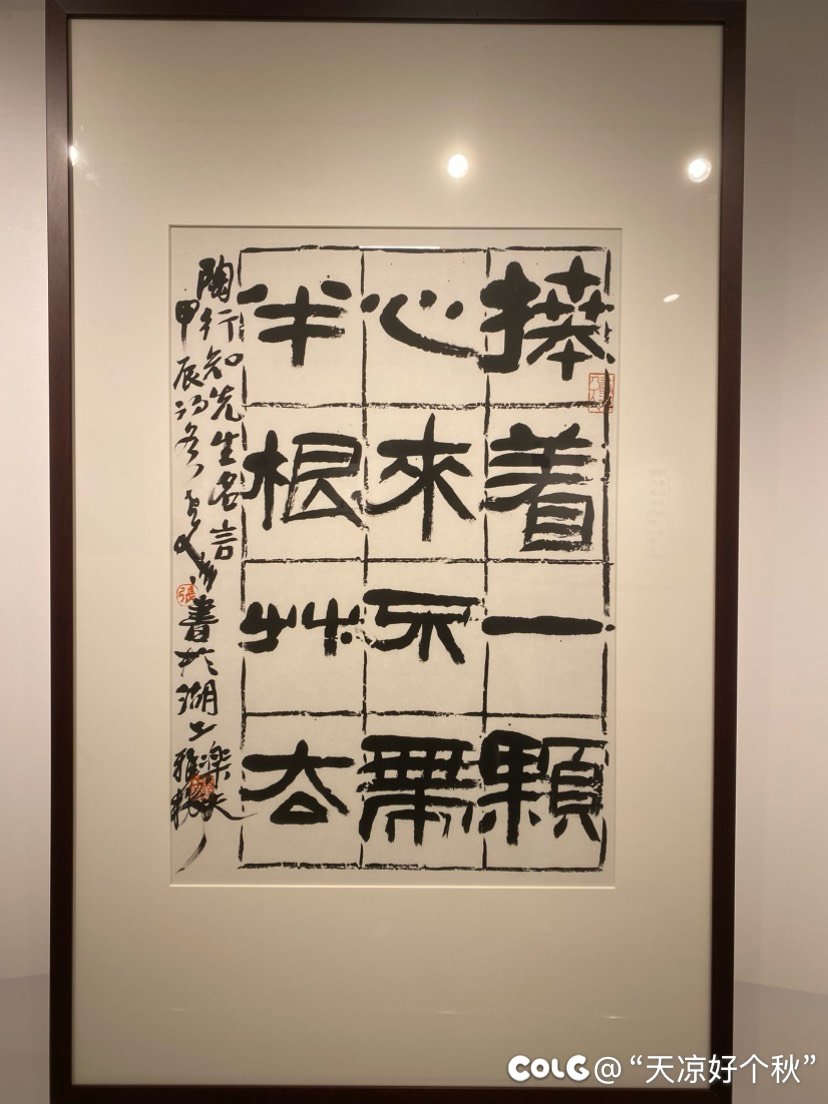 捧着一顆
心來不帶
半根艸去
陶行知先生名言
甲辰初冬書於湖上
COLG@“天凉好个秋”